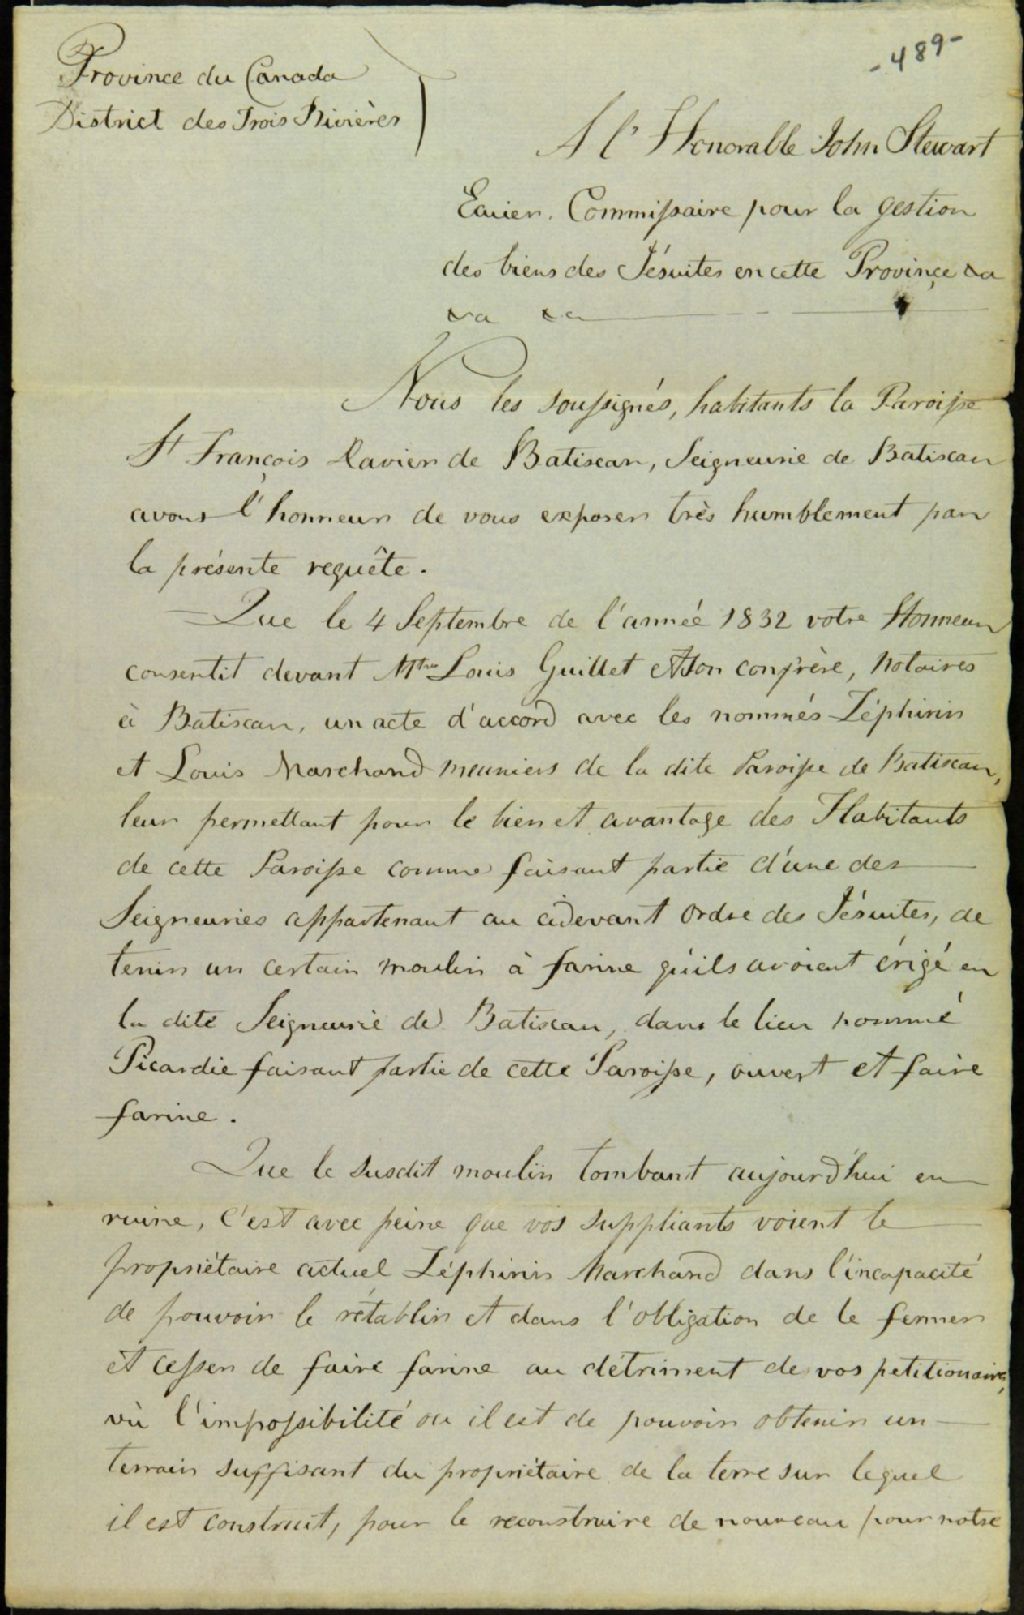 - 489 -
Province du Canada
District des Trois Rivières
A l'Honorable John Stewart
Ecuier. Commissaire pour la gestion
des biens des Jésuites en cette Province &a
&a &a
Nous les soussignés, habitants la Paroisse
St François Xavier de Batiscan, Seigneurie de Batiscan
avons l'honneur de vous exposer très humblement par
la présente requête.
Que le 4 Septembre de l'année 1832 votre Honneur
consentit devant Mtres Louis Guillet et son confrère, notaires
à Batiscan, un acte d'accord avec les nommés Zéphirin
et Louis Marchand meuniers de la dite Paroisse de Batiscan,
leur permettant pour le bien et avantage des Habitants
de cette Paroisse comme faisant partie d'une des
Seigneuries appartenant au cidevant Ordre des Jésuites, de
tenir un certain moulin à farine qu'ils avoient érigé en
la dite Seigneurie de Batiscan, dans le lieu nommé
Picardie faisant partie de cette Paroisse, ouvert et faire
farine.
Que le susdit moulin tombant aujourd'hui en
ruine, c'est avec peine que vos suppliants voient le
propriétaire actuel Zéphirin Marchand dans l'incapacité
de pouvoir le rétablir et dans l'obligation de le fermer
et cesser de faire farine au détriment de vos petitionaires,
vù l'impossibilité ou il est de pouvoir obtenir un
terrain suffisant du propriétaire de la terre sur lequel
il est construit, pour le reconstruire de nouveau pour notre